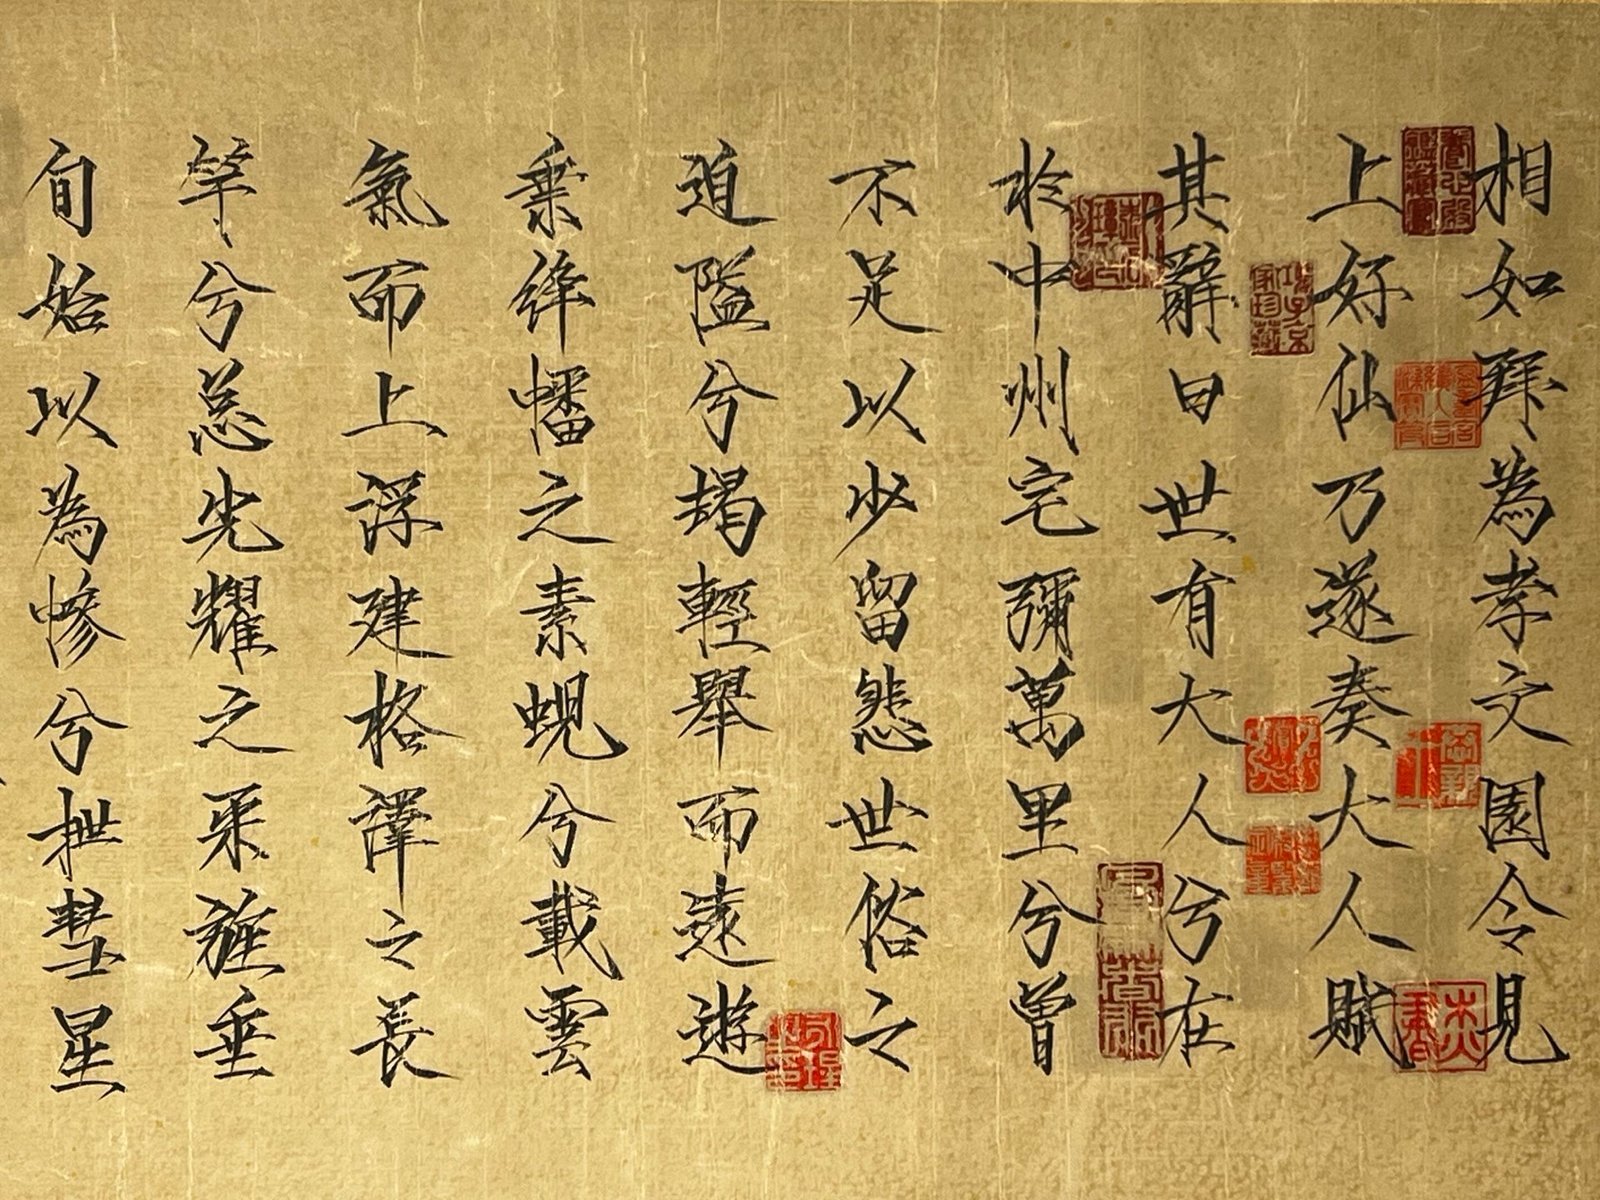 相如拜為孝文園令見
上好仙乃遂奏大人賦
其辭曰世有大人兮在
於中州宅彌萬里兮曾
不足以少留悲世俗之
迫隘兮朅輕舉而遠遊
乘絳幡之素蜺兮載雲
氣而上浮建格澤之長
竿兮總光耀之采旄垂
旬始以為幓兮抴彗星